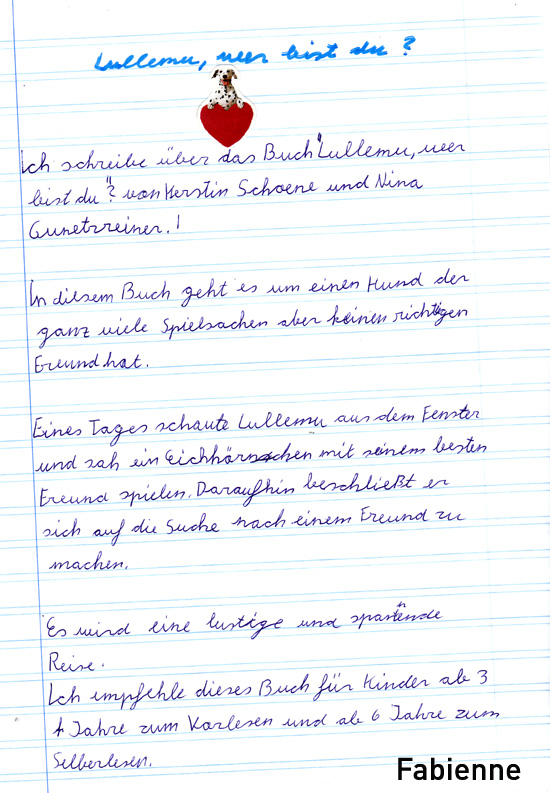 Lullemu, wer bist du?
Ich schreibe über das Buch "Lullemu, wer
bist du"? von Kerstin Schoene und Nina
Gunetzreiner.!
In diesem Buch geht es um einen Hund der
ganz viele Spielsachen aber keinen richtigen
Freund hat.
Eines Tages schaute Lullemu aus dem Fenster
und sah ein Eichhörnchen mit seinem besten
Freund spielen. Daraufhin beschließt er
sich auf die Suche nach einem Freund zu
machen.
Es wird eine lustige und spannende
Reise.
Ich empfehle dieses Buch für Kinder ab 3
Jahre zum Vorlesen und ab 6 Jahre zum
Selberlesen.
Fabienne